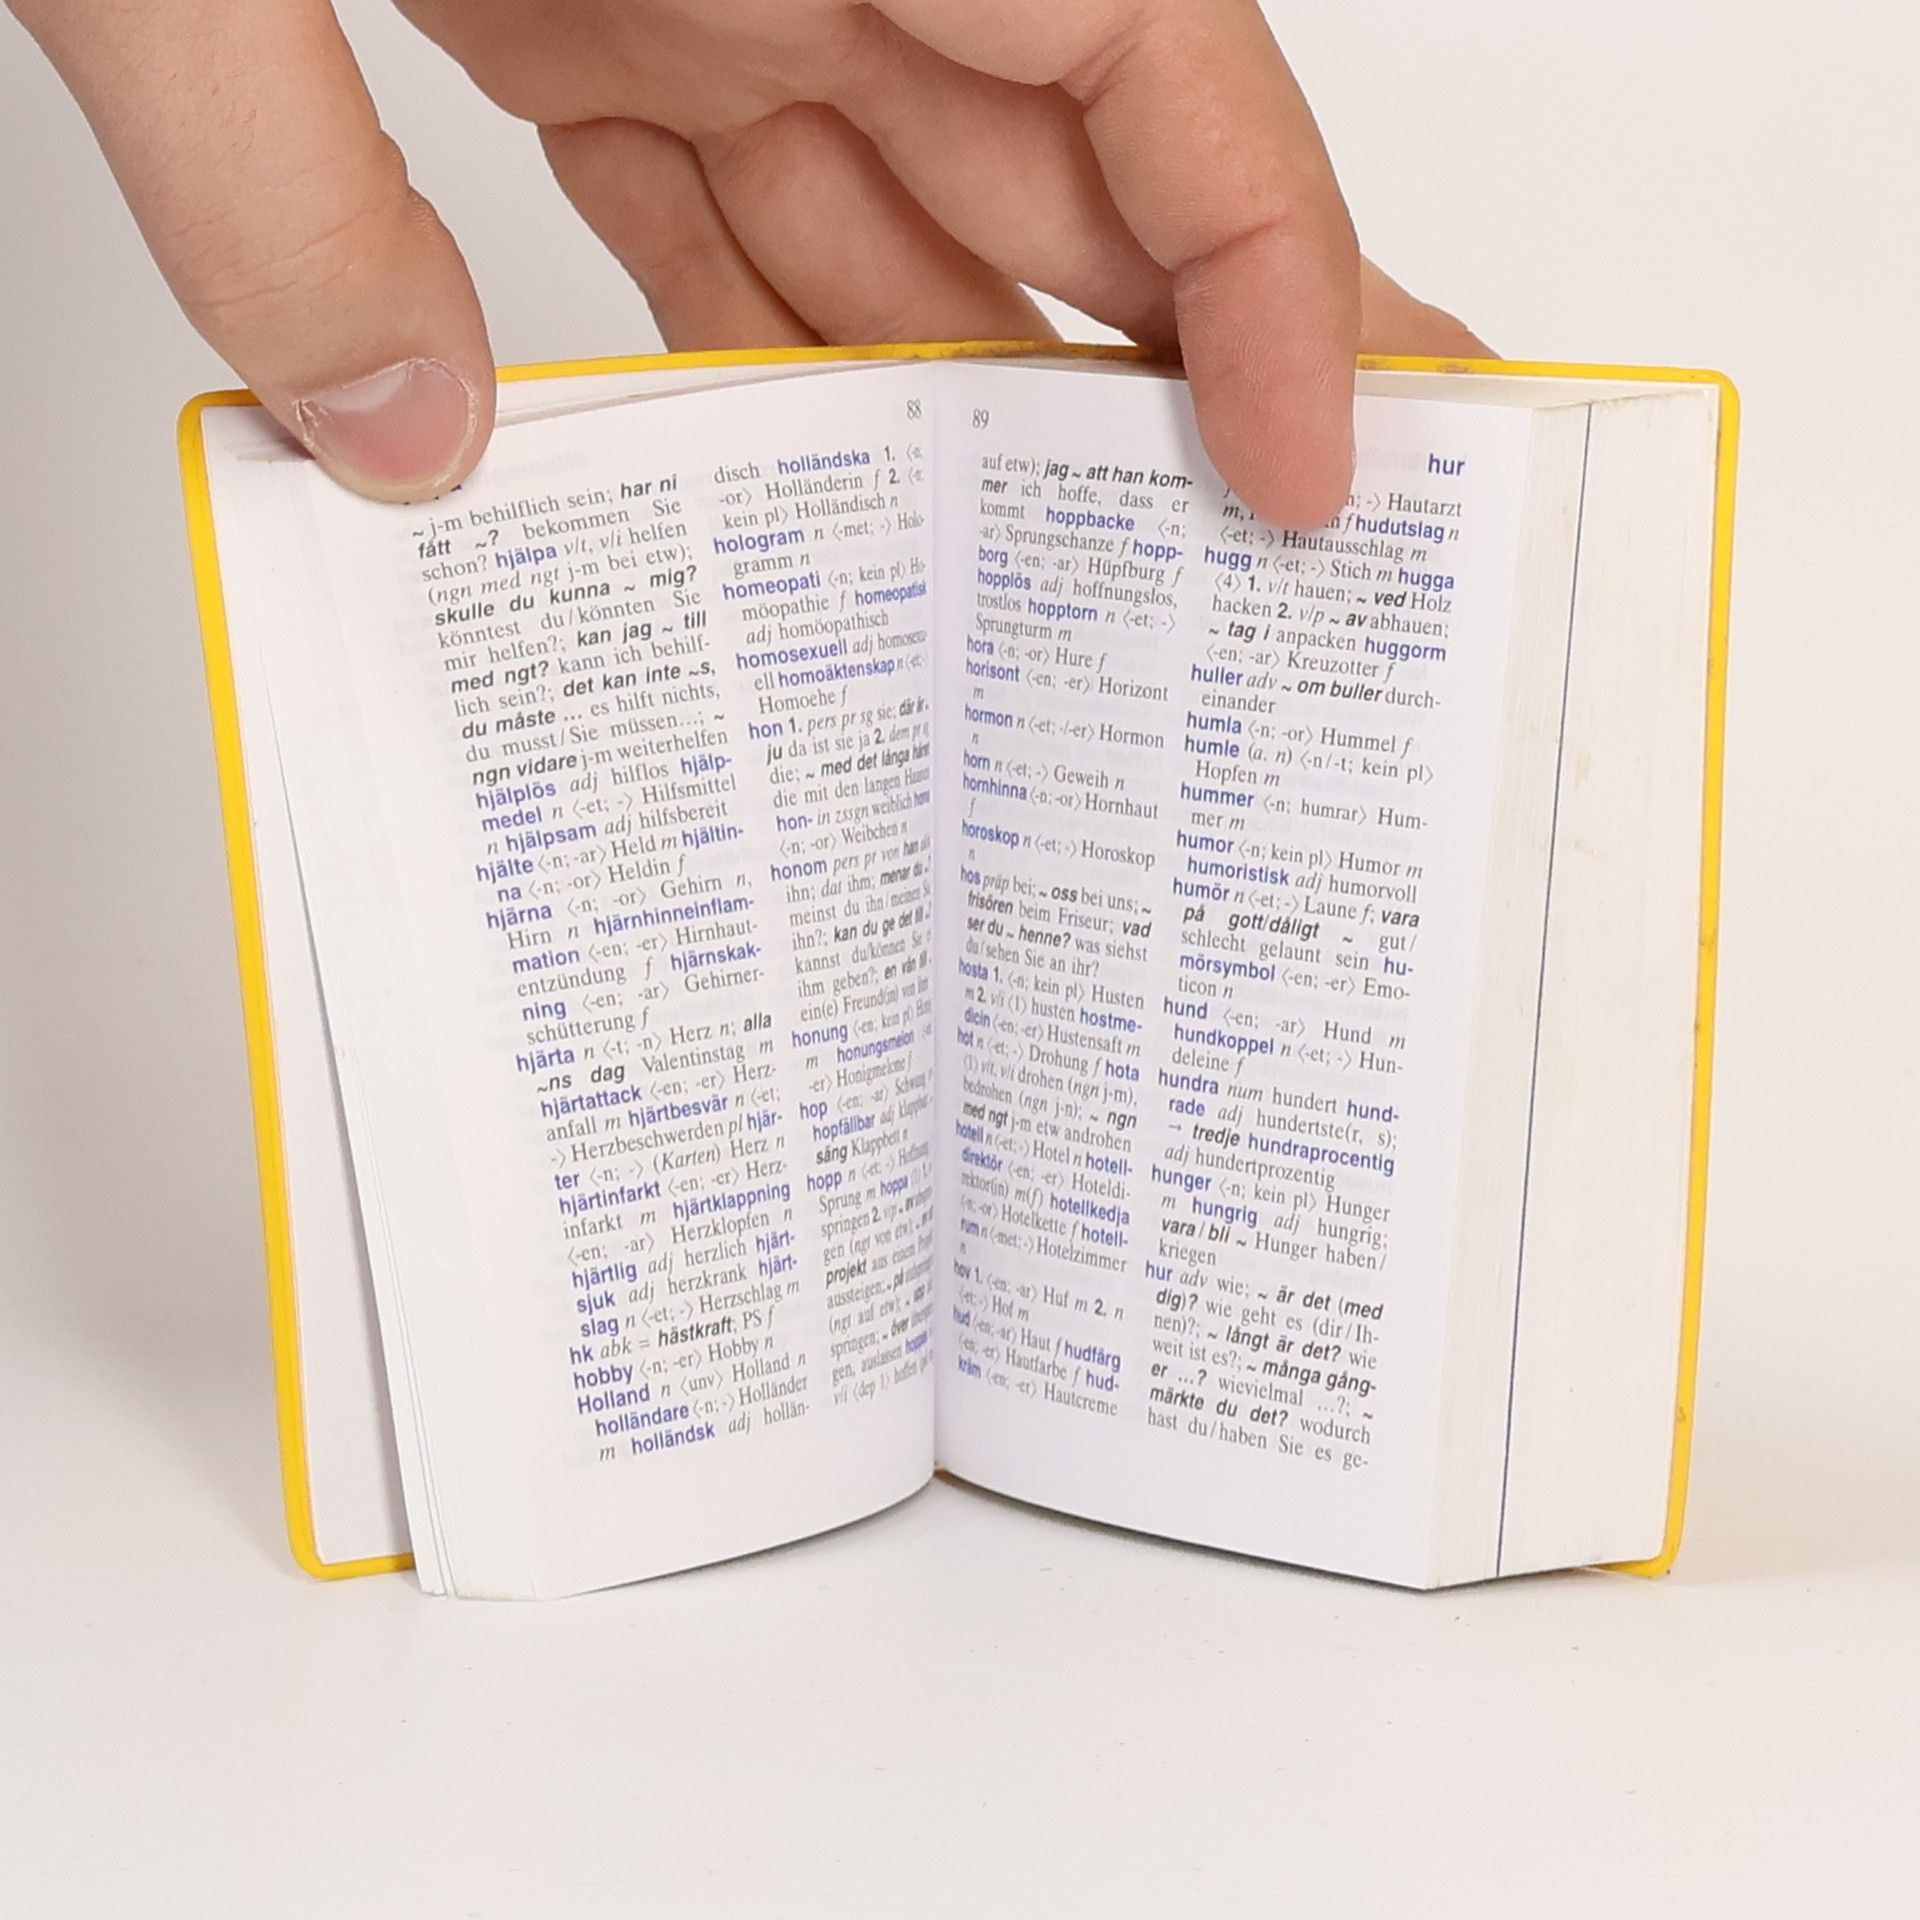 88
~ j-m behilflich sein; har ni
fått ~? bekommen Sie
schon? hjälpa v/t, v/i helfen
(ngn med ngt j-m bei etw);
skulle du kunna ~ mig?
könntest du/könnten Sie
mir helfen?; kan jag ~ till
med ngt? kann ich behilf-
lich sein?; det kan inte ~s,
du måste ... es hilft nichts,
du musst/Sie müssen...; ~
ngn vidare j-m weiterhelfen
hjälplös adj hilflos hjälp-
medel n ⟨-et; -⟩ Hilfsmittel
n hjälpsam adj hilfsbereit
hjälte ⟨-n; -ar⟩ Held m hjältin-
na ⟨-n; -or⟩ Heldin f
hjärna ⟨-n; -or⟩ Gehirn n,
Hirn n hjärnhinneinflam-
mation ⟨-en; -er⟩ Hirnhaut-
entzündung f hjärnskak-
ning ⟨-en; -ar⟩ Gehirner-
schütterung f
hjärta n ⟨-t; -n⟩ Herz n; alla
~ns dag Valentinstag m
hjärtattack ⟨-en; -er⟩ Herz-
anfall m hjärtbesvär n ⟨-et;
-⟩ Herzbeschwerden pl hjär-
ter ⟨-n; -⟩ (Karten) Herz n
hjärtinfarkt ⟨-en; -er⟩ Herz-
infarkt m hjärtklappning
⟨-en; -ar⟩ Herzklopfen n
hjärtlig adj herzlich hjärt-
sjuk adj herzkrank hjärt-
slag n ⟨-et; -⟩ Herzschlag m
hk abk = hästkraft; PS f
hobby ⟨-n; -er⟩ Hobby n
Holland n ⟨unv⟩ Holland n
holländare ⟨-n; -⟩ Holländer
m holländsk adj hollän-
disch holländska 1. ⟨-n;
-or⟩ Holländerin f 2. ⟨-n;
kein pl⟩ Holländisch n
hologram n ⟨-met; -⟩ Holo-
gramm n
homeopati ⟨-n; kein pl⟩ Ho-
möopathie f homeopatisk
adj homöopathisch
homosexuell adj homosexu-
ell homoäktenskap n ⟨-et; -⟩
Homoehe f
hon 1. pers pr sg sie; där är
ju da ist sie ja 2. dem pr sg
die; ~ med det långa håret
die mit den langen Haaren
hon- in zssgn weiblich
⟨-n; -or⟩ Weibchen n
honom pers pr von han
ihn; dat ihm; menar du
meinst du ihn/meinen Sie
ihn?; kan du ge det till
kannst du/können Sie
ihm geben?; en vän till
ein(e) Freund(in) von ihm
honung ⟨-en; kein pl⟩
m honungsmelon
-er⟩ Honigmelone f
hop ⟨-en; -ar⟩
hopfällbar adj
säng Klappbett n
hopp n ⟨-et; -⟩ Hoffnung
Sprung m hoppa ⟨1⟩ 1.
springen 2. v/p ~
gen (ngt von etw);
projekt aus einem
aussteigen; ~ på
(ngt auf etw); ~ upp
springen; ~ över
gen, auslassen
v/i ⟨dep 1⟩ hoffen
89
hur
auf etw); jag ~ att han kom-
mer ich hoffe, dass er
kommt hoppbacke ⟨-n;
-ar⟩ Sprungschanze f hopp-
borg ⟨-en; -ar⟩ Hüpfburg f
hopplös adj hoffnungslos,
trostlos hopptorn n ⟨-et; -⟩
Sprungturm m
hora ⟨-n; -or⟩ Hure f
horisont ⟨-en; -er⟩ Horizont
m
hormon n ⟨-et; -/-er⟩ Hormon
n
horn n ⟨-et; -⟩ Geweih n
hornhinna ⟨-n; -or⟩ Hornhaut
f
horoskop n ⟨-et; -⟩ Horoskop
n
hos präp bei; ~ oss bei uns; ~
frisören beim Friseur; vad
ser du ~ henne? was siehst
du/sehen Sie an ihr?
hosta 1. ⟨-n; kein pl⟩ Husten
m 2. v/i ⟨1⟩ husten hostme-
dicin ⟨-en; -er⟩ Hustensaft m
hot n ⟨-et; -⟩ Drohung f hota
⟨1⟩ v/t, v/i drohen (ngn j-m),
bedrohen (ngn j-n); ~ ngn
med ngt j-m etw androhen
hotell n ⟨-et; -⟩ Hotel n hotell-
direktör ⟨-en; -er⟩ Hoteldi-
rektor(in) m(f) hotellkedja
⟨-n; -or⟩ Hotelkette f hotell-
rum n ⟨-met; -⟩ Hotelzimmer
n
hov 1. ⟨-en; -ar⟩ Huf m 2. n
⟨-et; -⟩ Hof m
hud ⟨-en; -ar⟩ Haut f hudfärg
⟨-en; -er⟩ Hautfarbe f hud-
kräm ⟨-en; -er⟩ Hautcreme
-⟩ Hautarzt
m, f hudutslag n
⟨-et; -⟩ Hautausschlag m
hugg n ⟨-et; -⟩ Stich m hugga
⟨4⟩ 1. v/t hauen; ~ ved Holz
hacken 2. v/p ~ av abhauen;
~ tag i anpacken huggorm
⟨-en; -ar⟩ Kreuzotter f
huller adv ~ om buller durch-
einander
humla ⟨-n; -or⟩ Hummel f
humle (a. n) ⟨-n/-t; kein pl⟩
Hopfen m
hummer ⟨-n; humrar⟩ Hum-
mer m
humor ⟨-n; kein pl⟩ Humor m
humoristisk adj humorvoll
humör n ⟨-et; -⟩ Laune f; vara
på gott/dåligt ~ gut/
schlecht gelaunt sein hu-
mörsymbol ⟨-en; -er⟩ Emo-
ticon n
hund ⟨-en; -ar⟩ Hund m
hundkoppel n ⟨-et; -⟩ Hun-
deleine f
hundra num hundert hund-
rade adj hundertste(r, s);
→ tredje hundraprocentig
adj hundertprozentig
hunger ⟨-n; kein pl⟩ Hunger
m hungrig adj hungrig;
vara / bli ~ Hunger haben/
kriegen
hur adv wie; ~ är det (med
dig)? wie geht es (dir/Ih-
nen)?; ~ långt är det? wie
weit ist es?; ~ många gång-
er ...? wievielmal ...?; ~
märkte du det? wodurch
hast du/haben Sie es ge-